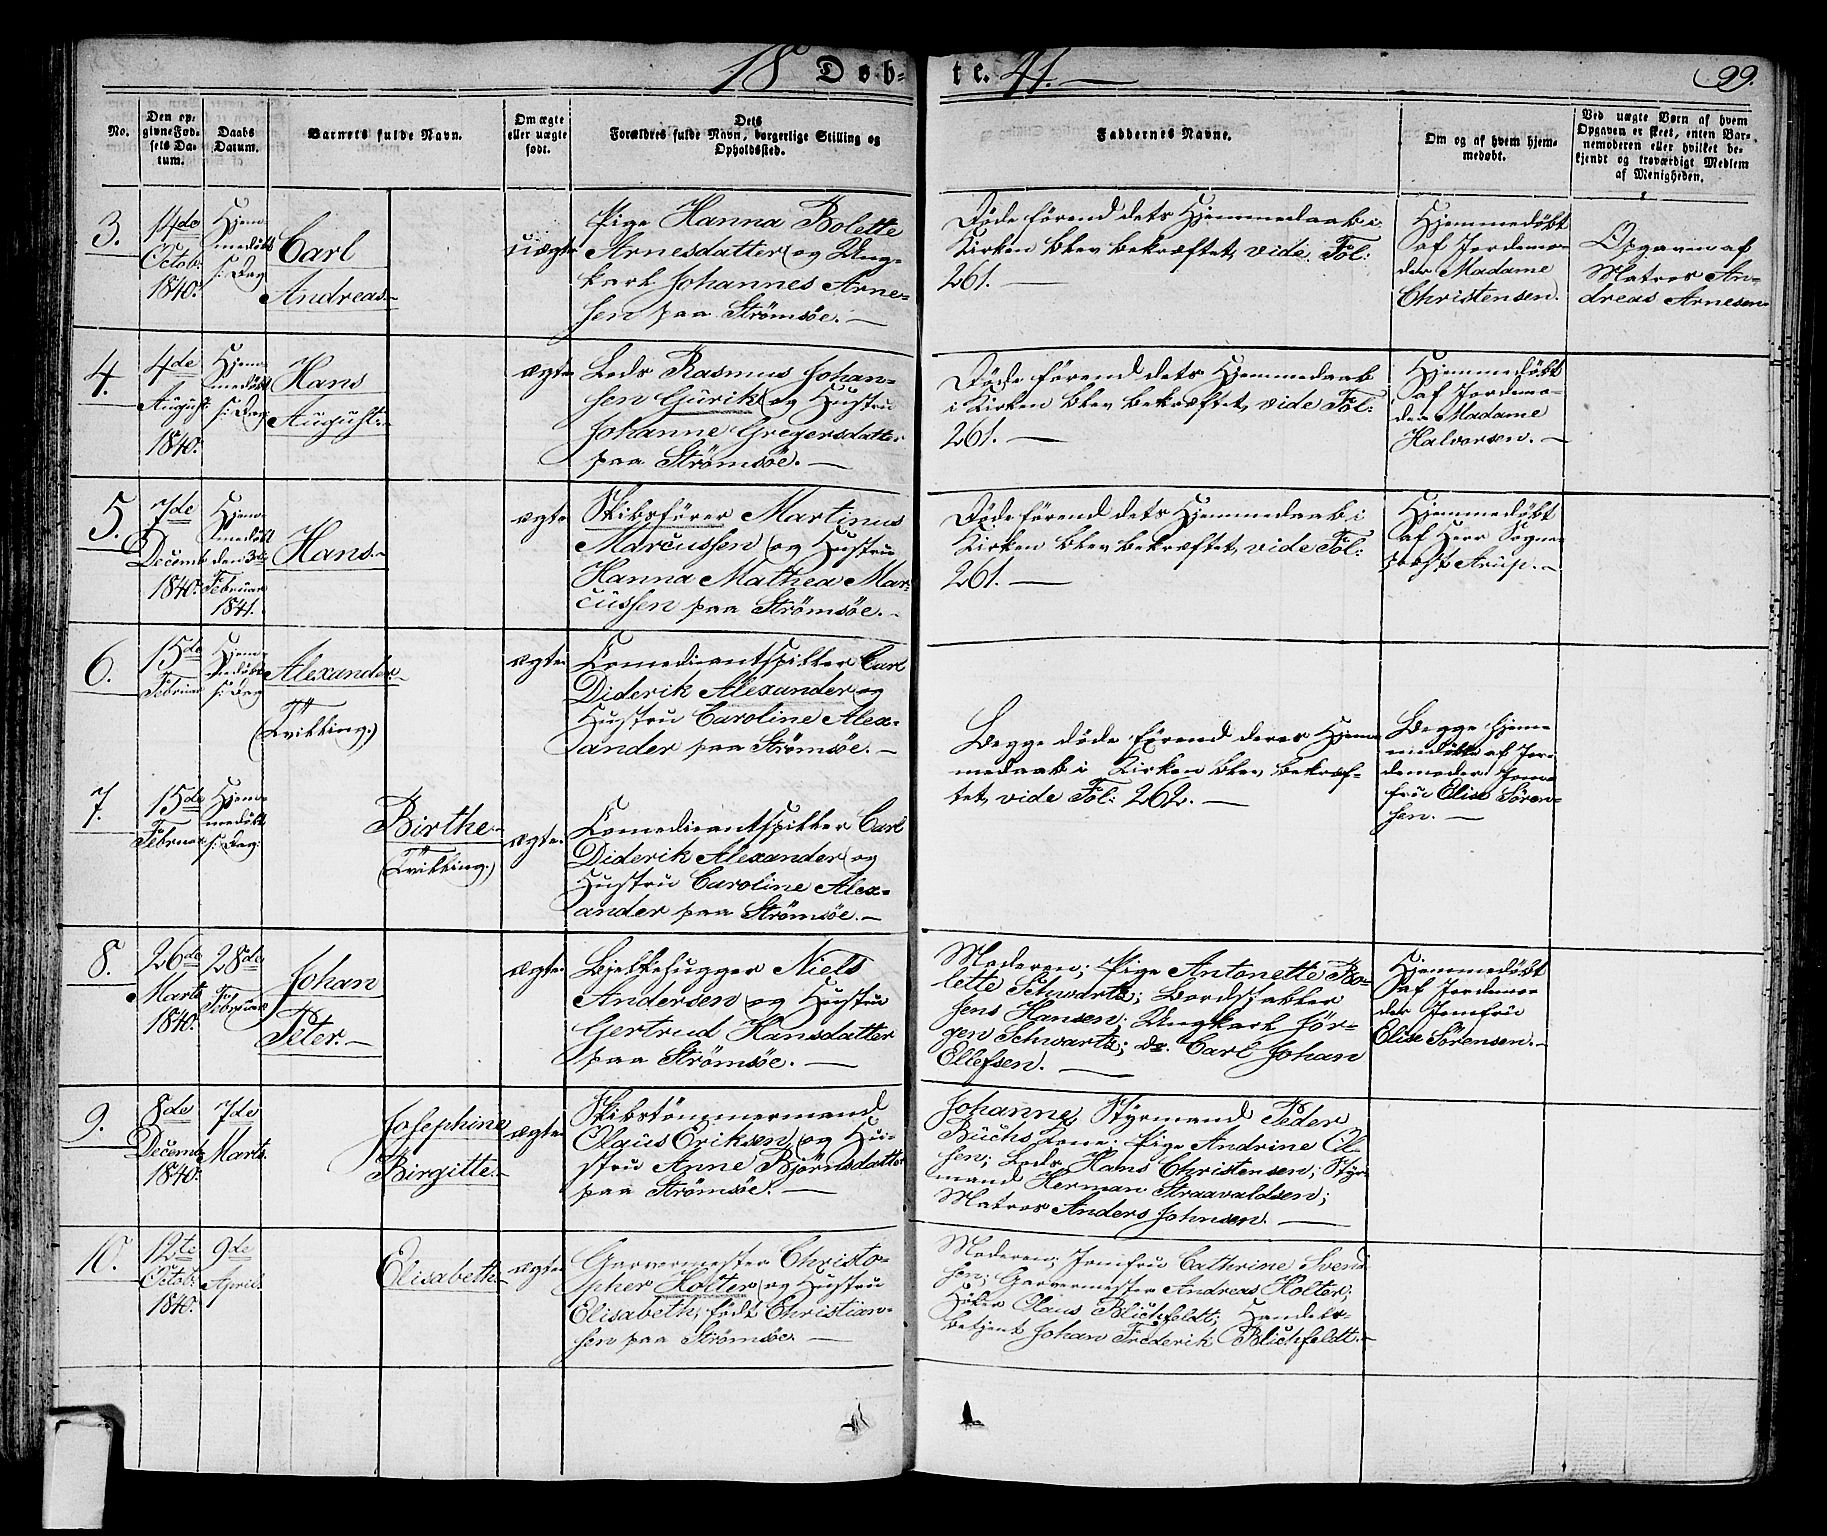 18 Døb-te. 41. 99.
No.
Den op-
givne Fød-
sels Da-
tum.
Daabs
Datum.
Barnets fulde Navn.
Om ægte
eller uægte
født.
Dets
Forældres fulde Navn, borgerlige Stilling og
Opholdssted.
Faddernes Navne.
Om og af hvem hjem-
medøbt.
Ved uægte Børn af hvem
Opgaven er skeet, enten Bar-
nemoderen eller hvilket be-
kjendt og troværdigt Medlem
af Menigheden.
3.
14de
Octob:
1840.
Hjem-
medøbt
s: Dag
Carl
Andreas.-
uægte
Pige Hanna Bolette
Arnesdatter og Ung-
karl Johannes Arne-
sen paa Strømsøe.-
Døde førend dets Hjemmedaab i
Kirken blev bekræftet, vide Fol:
261.-
Hjemmedøbt
af Jordemo-
der Madame
Christensen.
Opgaven af
Matros An-
dreas Arnesen
4.
4de
August
1840.
Hjem-
medøbt
s: Dag
Hans
August.-
ægte
Lods Rasmus Johan-
sen Gurik og Hustru
Johanne Gregersdatter
paa Strømsøe.-
Døde førend dets Hjemmedaab
i Kirken blev bekræftet, vide Fol:
261.-
Hjemmedøbt
af Jordemo-
der Madame
Halvorsen.-
5.
7de
Decemb
1840.
Hjem-
medøbt
den 3de
Februar
1841.
Hans.-
ægte
Skibsfører Martinus
Marcussen og Hustru
Hanna Mathea Mar-
cussen paa Strømsøe.-
Døde førend dets Hjemmedaab i
Kirken blev bekræftet, vide Fol:
261.-
Hjemmedøbt
af Herr Sogne-
præst Arup.-
6.
15de
Februar
Hjem-
medøbt
s: Dag
Alexander.-
(Tvilling.)
ægte
Comediantspiller Carl
Diderik Alexander og
Hustru Caroline Alex-
ander paa Strømsøe.-
Begge døde førend deres Hjem-
medaab i Kirken blev bekræf-
tet, vide Fol: 262.-
Begge hjem-
medøbte af Jor-
demoder Jom-
fru Elise Søren-
sen.-
7.
15de
Februar
Hjem-
medøbt
s: Dag:
Birthe.-
(Tvilling.)
ægte
Comediantspiller Carl
Diderik Alexander og
Hustru Caroline Alex-
ander paa Strømsøe.-
8.
26de
Marts
1840.
28de
Februar
Johan
Peter.-
ægte
Bjelkehugger Niels
Andersen og Hustru
Gertrud Hansdatter
paa Strømsøe.-
Moderen; Pige Antonette Bo-
lette Schwartz; Bordstabler
Jens Hansen; Ungkarl Jør-
gen Schwartz; do. Carl Johan
Ellefsen.-
Hjemmedøbt
af Jordemo-
der Jomfru
Elise Sørensen.-
9.
8de
Decemb
1840.
7de
Marts.
Josephine
Birgitte.-
ægte
Skibstømmermand
Olaus Eriksen, og Hu-
stru Anne Bjørnsdatter
paa Strømsøe.-
Johanne, Styrmand Peder
Buchs Kone; Pige Andrine Ol-
sen; Lods Hans Christensen; Styr-
mand Herman Straavaldsen;
Matros Anders Johnsen.-
10.
12te
Octob:
1840.
9de
April.
Elisabeth.-
ægte
Garvermester Christo-
pher Holter og Hustru
Elisabeth, født Christian-
sen paa Strømsøe.-
Moderen; Jomfru Cathrine Svend-
sen; Garvermester Andreas Holter;
Høker Olaus Blichfeldt; Handels-
betjent Johan Frederik Blichfeldt.-